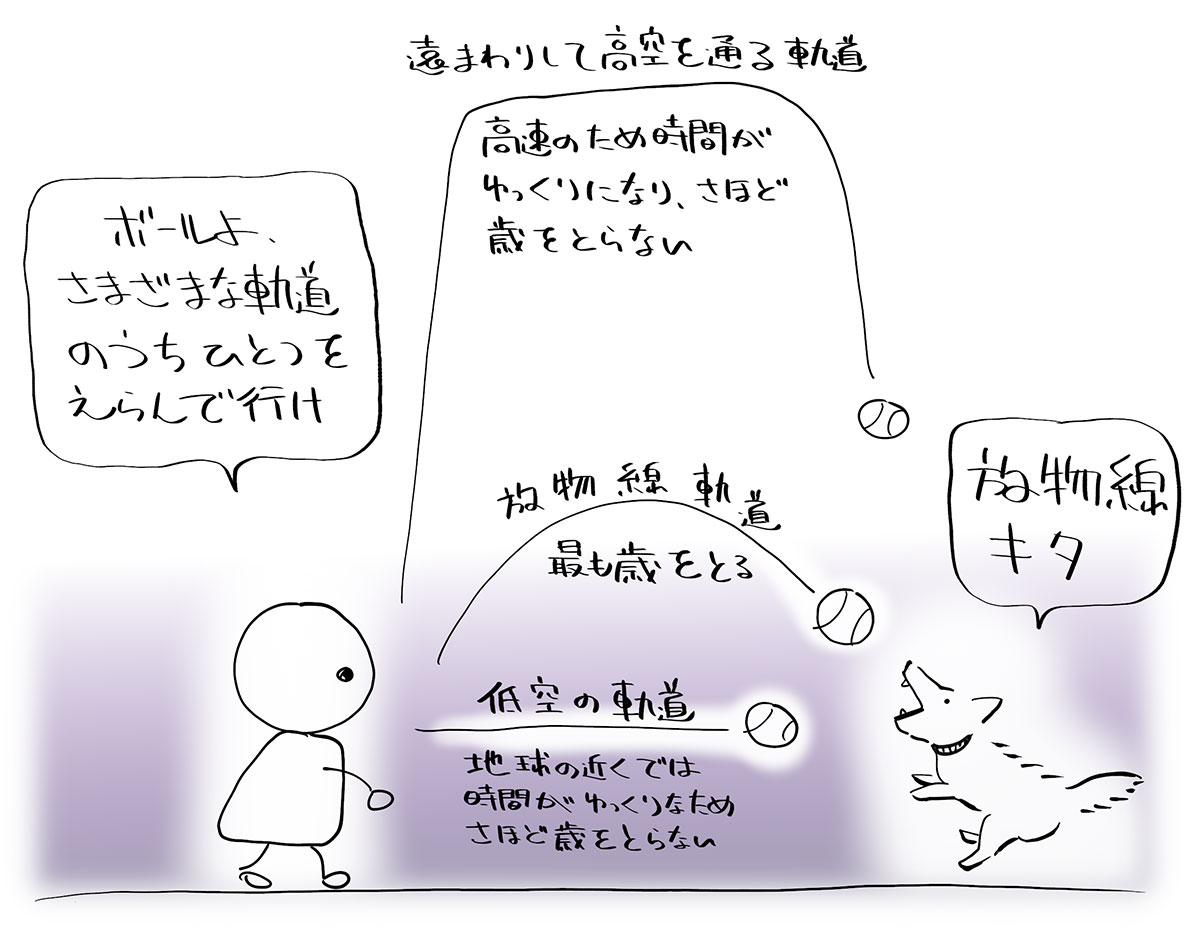 遠まわりして高空を通る軌道
高速のため時間が
ゆっくりになり、さほど
歳をとらない
ボールよ、
さまざまな軌道
のうちひとつを
えらんで行け
放物線軌道
最も歳をとる
放物線
キタ
低空の軌道
地球の近くでは
時間がゆっくりなため
さほど歳をとらない